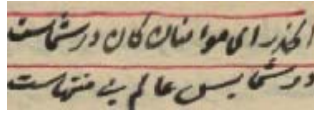 الحذر ای مؤمنان کان در شماست
در شما بس عالم بی منتهاست